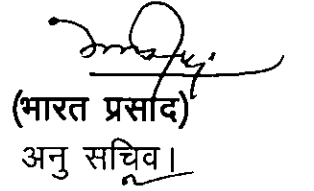 (भारत प्रसाद)
अनु सचिव।